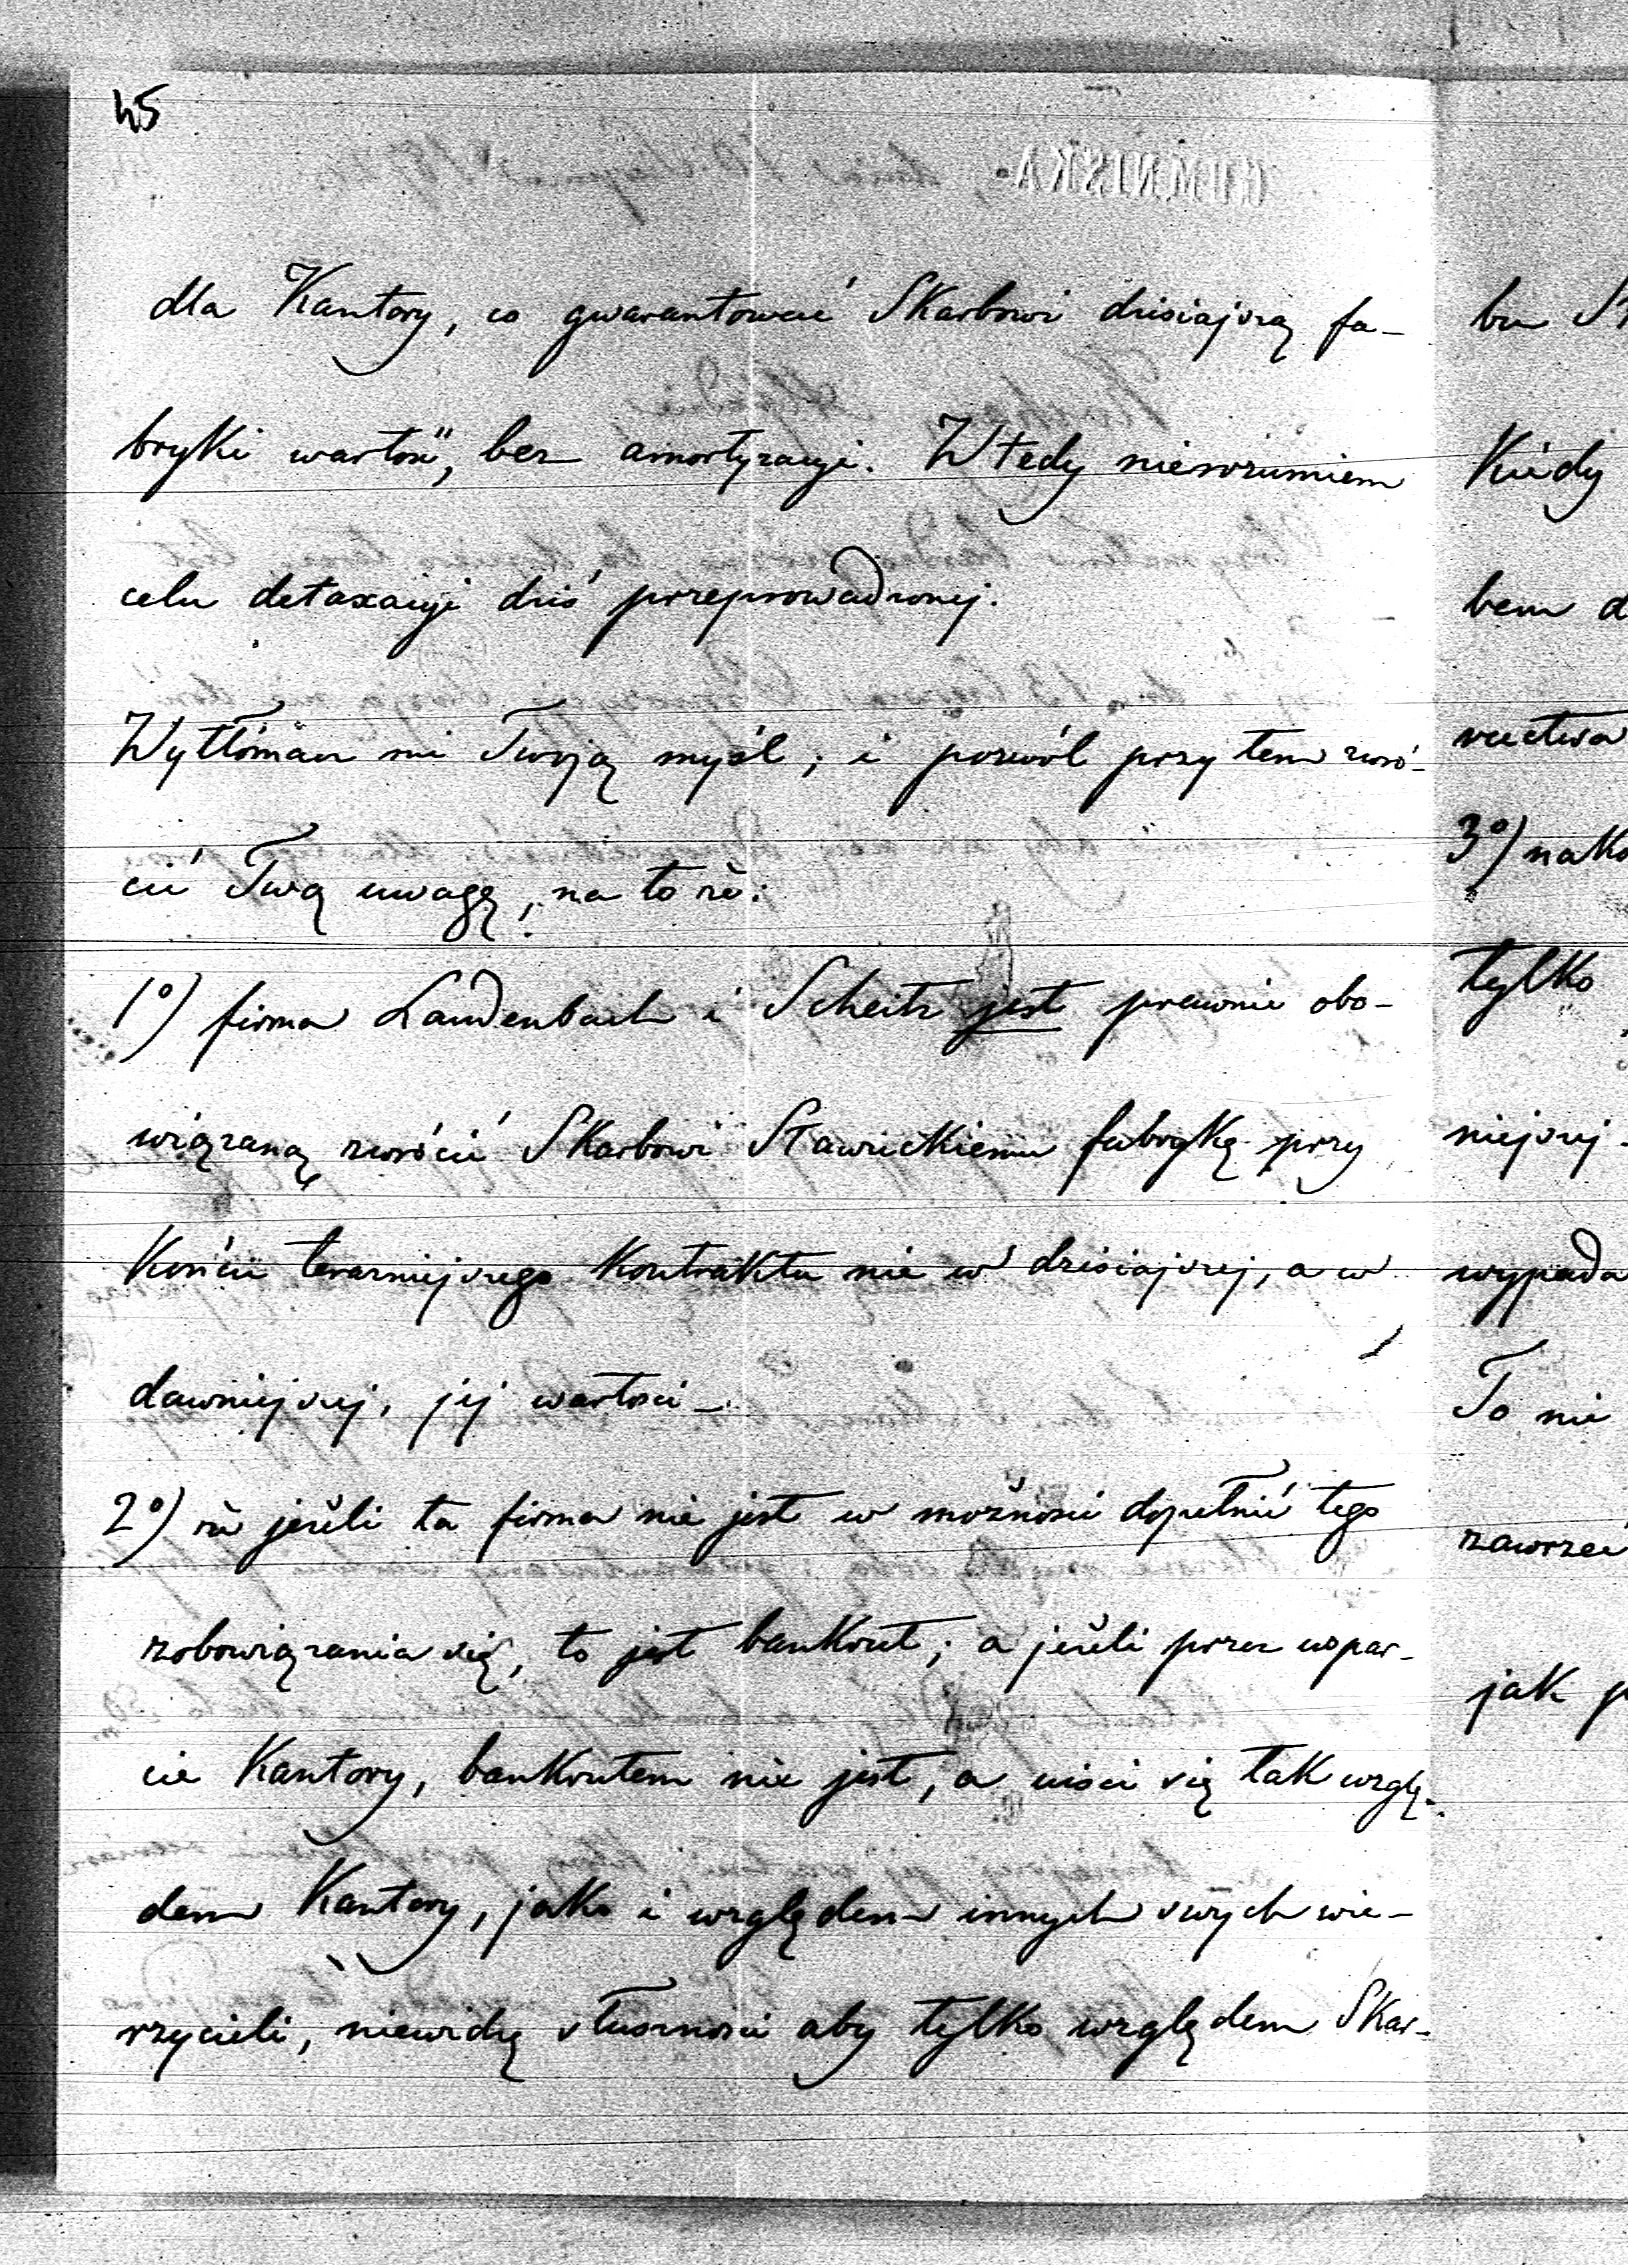 45
HUMNISKA.
dla Kantory, co gwarantować Skarbowi dzisiajszą fa-
bryki wartość, bez amortyzacyi. Wtedy nierozumiem
celu detaxacyi dziś przeprowadzonej.
Wytłómacz mi Twoją myśl; i pozwól przy tem zwró-
cić Twą uwagę, na to że:
1o) firma Laudenbach i Scheitz jest prawnie obo-
wiązaną zwrócić Skarbowi Stawickiemu fabrykę przy
końcu teraźniejszego kontraktu nie w dzisiajszej, a w
dawniejszej, jej wartości –
2o) że jeżeli ta firma nie jest w możności dopełnić tego
zobowiązania się, to jest bankrut; a jeżeli przez wspar-
cie Kantory, bankrutem nie jest, a uiści się tak wzglę-
dem Kantory, jako i względem innych swych wie-
rzycieli, niewidzę słuszności aby tylko względem Skar-
bu
Kiedy
bem
3o)
tylko
niejszej
wypada
To nie
zawrzeć
jak